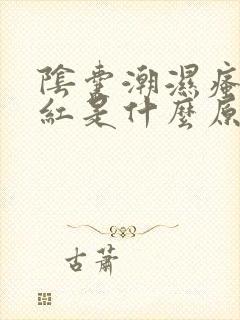 陰囊潮濕瘙
紅是什麼原
古蕭